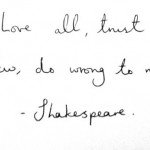 Love all, trust
, do wrong to
- Shakespeare.